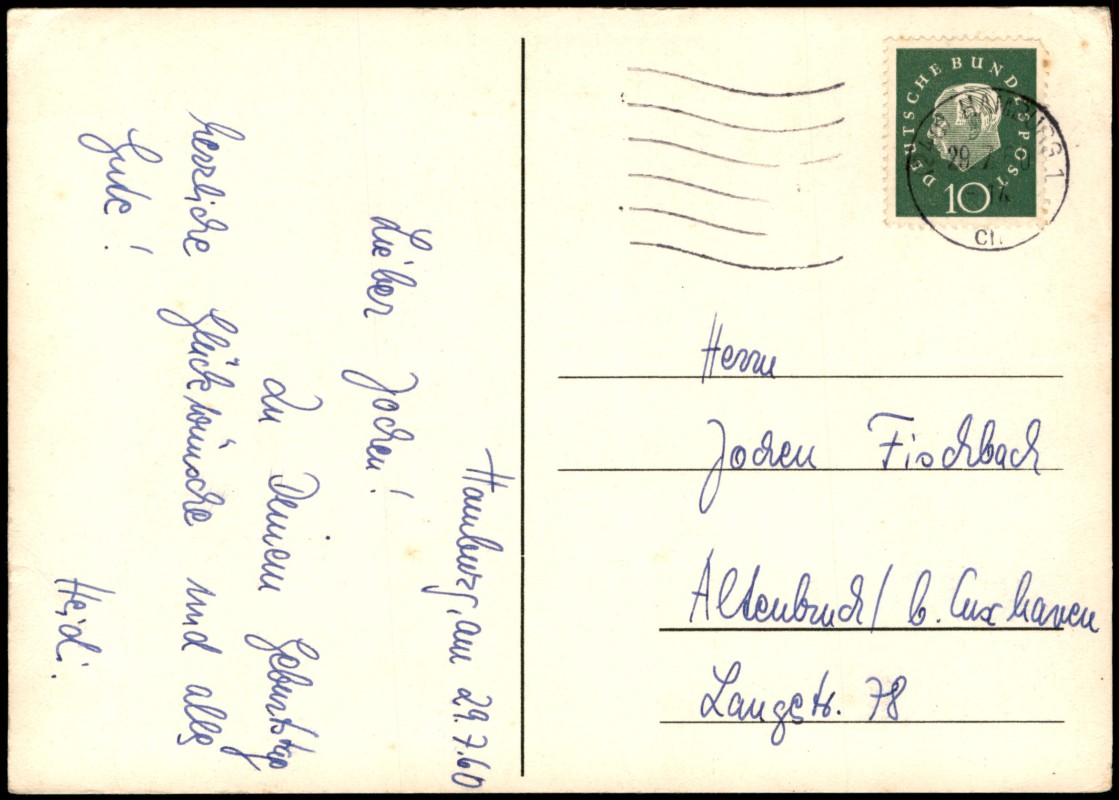 Hamburg, am 29.7.60
Lieber Jochen!
Zu Deinem Geburtstag
herzliche Glückwünsche und alles
Gute!
Heidi.
DEUTSCHE BUNDESPOST
10
HAMBURG 1
29.7.60
Herrn
Jochen Fischbach
Altenbruch / b. Cuxhaven
Langestr. 78